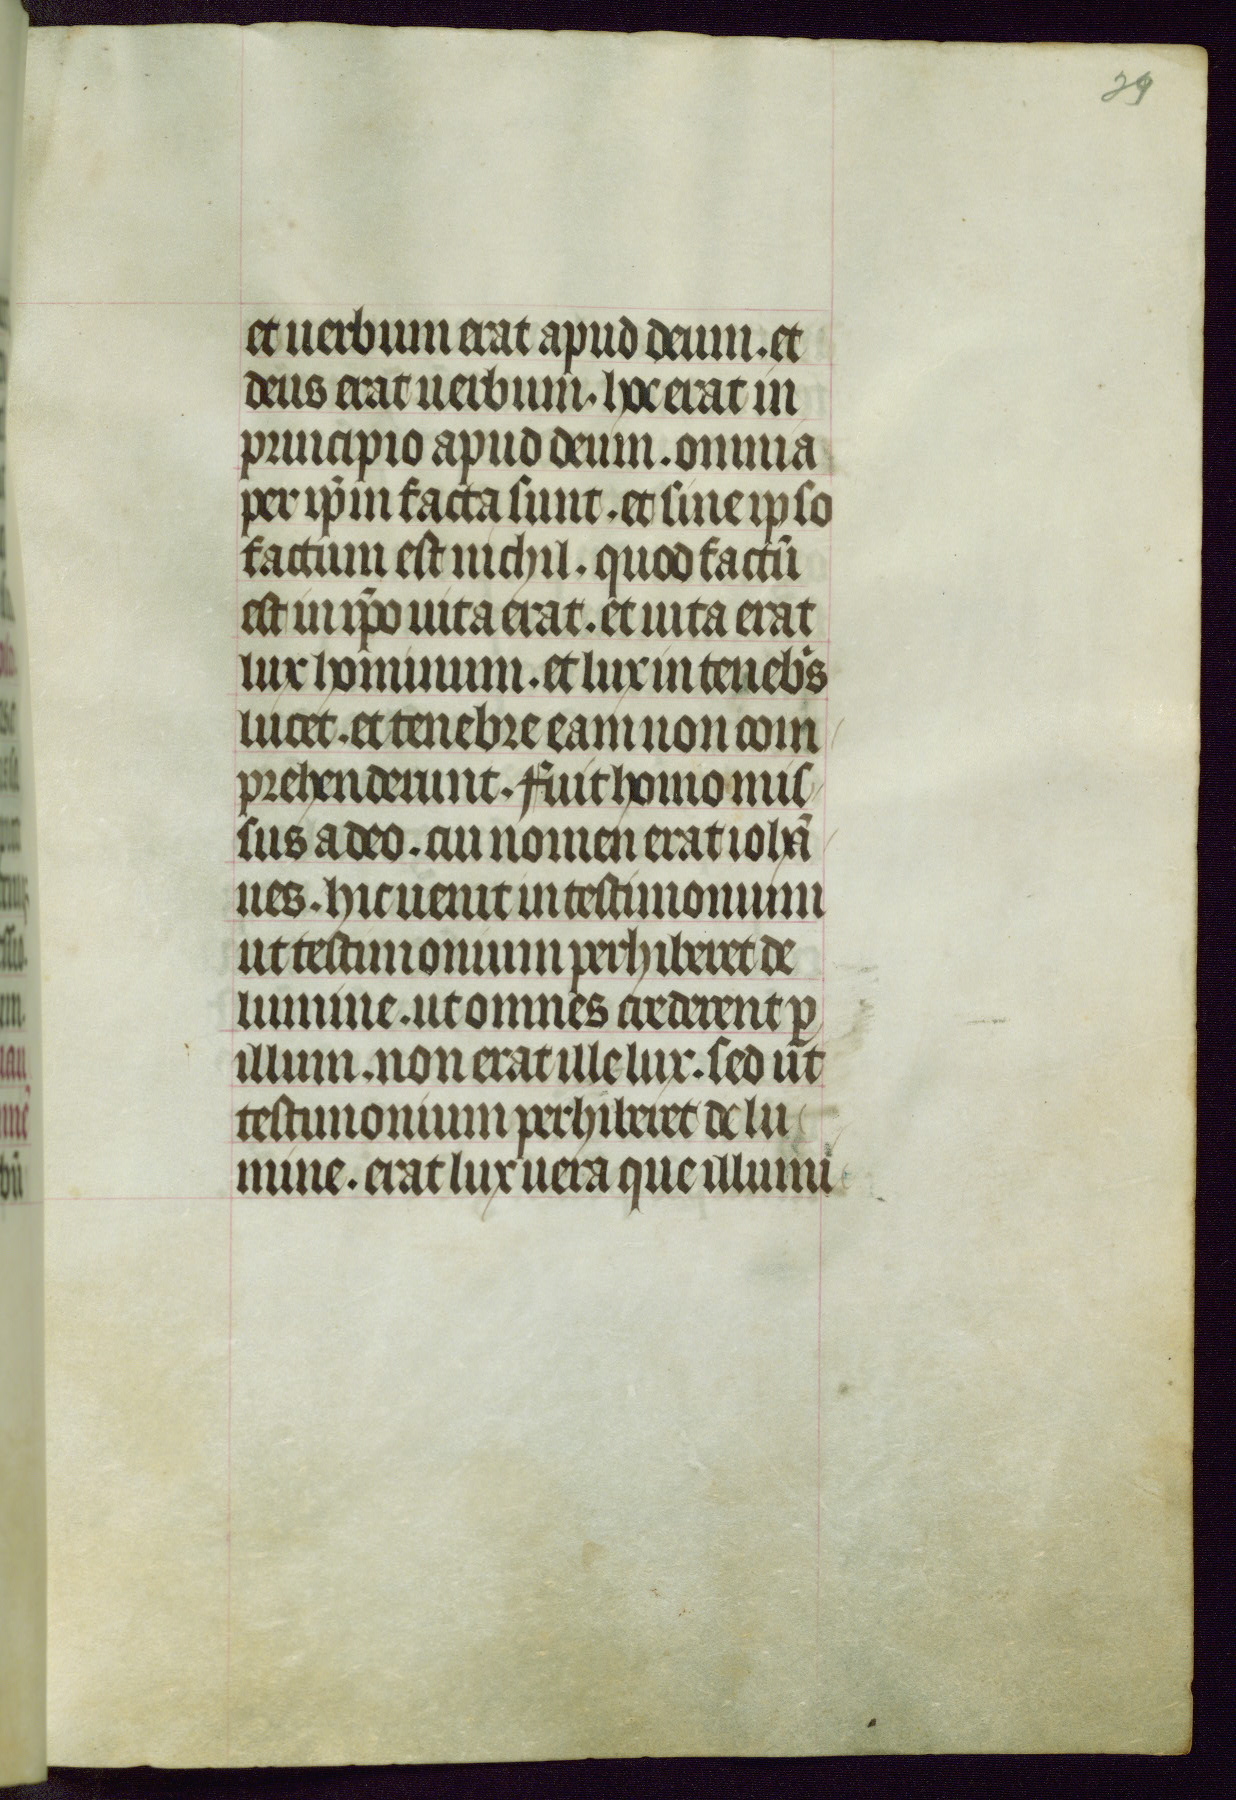 29
et uerbum erat apud deum. et
deus erat uerbum. hoc erat in
principio apud deum. omnia
per ip̄m facta sunt. et sine ipso
factum est nichil. quod factū
est in ip̄o uita erat. et uita erat
lux hominum. et lux in teneb̄s
lucet. et tenebre eam non com
prehenderunt. Fuit homo mis
sus a deo. cui nomen erat iohā
nes. hic uenit in testimonium
ut testimonium perhiberet de
lumine. ut omnes crederent ꝑ
illum. non erat ille lux. sed ut
testimonium perhiberet de lu
mine. erat lux uera que illumi